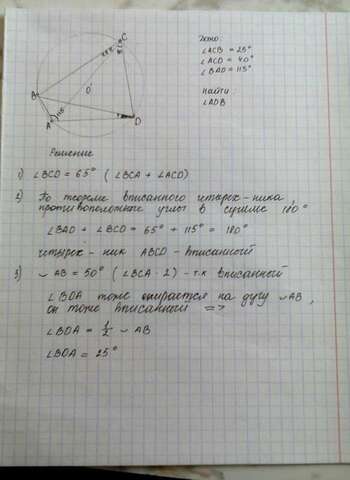 Дано:
∠ACB = 25°
∠ACD = 40°
∠BAD = 115°
найти:
∠ADB
C
25°
40°
B
O
A
115°
D
Решение
1) ∠BCD = 65° (∠BCA + ∠ACD)
2) По теореме вписанного четырех-ника,
противоположные углы в сумме 180°
∠BAD + ∠BCD = 65° + 115° = 180°
четырех-ник ABCD - вписанный
3) ◡ AB = 50° (∠BCA · 2) - т.к вписанный
∠BDA тоже опирается на дугу ◡AB,
он тоже вписанный =>
∠BDA = 1/2 ◡ AB
∠BDA = 25°